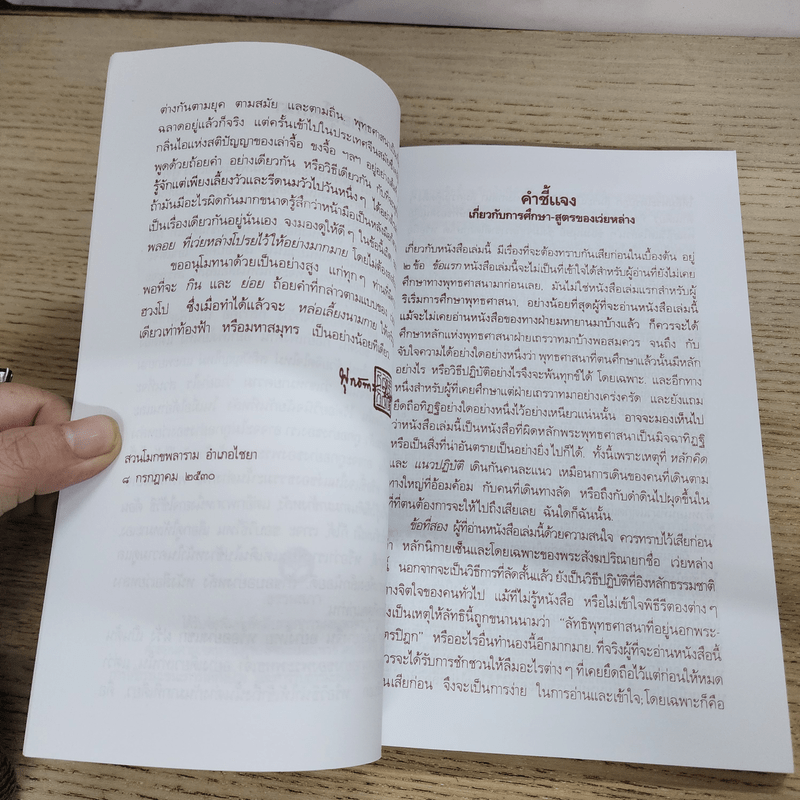 ต่างกันตามยุค ตามสมัย และตามถิ่น พุทธศาสนา
ฉลาดอยู่แล้วก็จริง แต่ครั้นเข้าไปในประเทศจีน
กลิ่นไอแห่งสติปัญญาของเล่าจื๊อ ขงจื๊อ ฯลฯ อยู่อย่าง
พูดด้วยถ้อยคำ อย่างเดียวกัน หรือวิธีเดียวกัน กับ
รู้จักแต่เพียงเลี้ยงวัวและรีดนมวัวไปวันหนึ่งๆ ได้อย่าง
ถ้ามันมีอะไรผิดกันมากขนาดรู้สึกว่าหน้ามือเป็นหลังมือ
เป็นเรื่องเดียวกันอยู่นั่นเอง จงมองดูให้ดีๆ ในข้อนี้
พลอย ที่เว่ยหล่างโปรยไว้ให้อย่างมากมาย โดยไม่ต้อง
ขออนุโมทนาด้วยเป็นอย่างสูง แก่ทุกๆ ท่าน
พอที่จะ กิน และ ย่อย ถ้อยคำที่กล่าวตามแบบของ
ฮวงโป ซึ่งเมื่อทำได้แล้วจะ หล่อเลี้ยงนามกาย ให้
เดียวเท่าท้องฟ้า หรือมหาสมุทร เป็นอย่างน้อยทีเดียว
สวนโมกขพลาราม อำเภอไชยา
๘ กรกฎาคม ๒๕๓๐
คำชี้แจง
เกี่ยวกับการศึกษา-สูตรของเว่ยหล่าง
เกี่ยวกับหนังสือเล่มนี้ มีเรื่องที่จะต้องทราบกันเสียก่อนในเบื้องต้น อยู่
๒ ข้อ ข้อแรก หนังสือเล่มนี้จะไม่เป็นที่เข้าใจได้สำหรับผู้อ่านที่ยังไม่เคย
ศึกษาทางพุทธศาสนามาก่อนเลย, มันไม่ใช่หนังสือเล่มแรกสำหรับผู้
ริเริ่มการศึกษาพุทธศาสนา, อย่างน้อยที่สุดผู้ที่จะอ่านหนังสือเล่มนี้
แม้จะไม่เคยอ่านหนังสือของทางฝ่ายมหายานมาบ้างแล้ว ก็ควรจะได้
ศึกษาหลักแห่งพุทธศาสนาฝ่ายเถรวาทมาบ้างพอสมควร จนถึง กับ
จับใจความได้อย่างใดอย่างหนึ่งว่า พุทธศาสนาที่ตนศึกษาแล้วนั้นมีหลัก
อย่างไร หรือวิธีปฏิบัติอย่างไรจึงจะพ้นทุกข์ได้ โดยเฉพาะ. และอีกทาง
หนึ่งสำหรับผู้ที่เคยศึกษาแต่ฝ่ายเถรวาทมาอย่างเคร่งครัด และยังแถม
ยึดถือทิฏฐิอย่างใดอย่างหนึ่งไว้อย่างเหนียวแน่นนั้น อาจจะมองเห็นไป
ว่าหนังสือเล่มนี้เป็นหนังสือที่ผิดหลักพระพุทธศาสนาเป็นมิจฉาทิฏฐิ
หรือเป็นสิ่งที่น่าอันตรายเป็นอย่างยิ่งไปก็ได้. ทั้งนี้เพราะเหตุที่ หลักคิด
และ แนวปฏิบัติ เดินกันคนละแนว เหมือนการเดินของคนที่เดินตาม
ทางใหญ่ที่อ้อมค้อม กับคนที่เดินทางลัด หรือถึงกับดำดินไปผุดขึ้นใน
ที่ที่ตนต้องการจะให้ไปถึงเสียเลย ฉันใดก็ฉันนั้น.
ข้อที่สอง ผู้ที่อ่านหนังสือเล่มนี้ด้วยความสนใจ ควรทราบไว้เสียก่อน
หลักนิกายเซ็นและโดยเฉพาะของพระสังฆปริณายกชื่อ เว่ยหล่าง
นี้ นอกจากจะเป็นวิธีการที่ลัดสั้นแล้ว ยังเป็นวิธีปฏิบัติที่อิงหลักธรรมชาติ
างจิตใจของคนทั่วไป แม้ที่ไม่รู้หนังสือ หรือไม่เข้าใจพิธีรีตองต่างๆ
งเป็นเหตุให้ลัทธินี้ถูกขนานนามว่า "ลัทธิพุทธศาสนาที่อยู่นอกพระ-
ตรปิฎก" หรืออะไรอื่นทำนองนี้อีกมากมาย. ที่จริงผู้ที่จะอ่านหนังสือนี้
วรจะได้รับการชักชวนให้ลืมอะไรต่างๆ ที่เคยยึดถือไว้แต่ก่อนให้หมด
นเสียก่อน จึงจะเป็นการง่าย ในการอ่านและเข้าใจ; โดยเฉพาะก็คือ